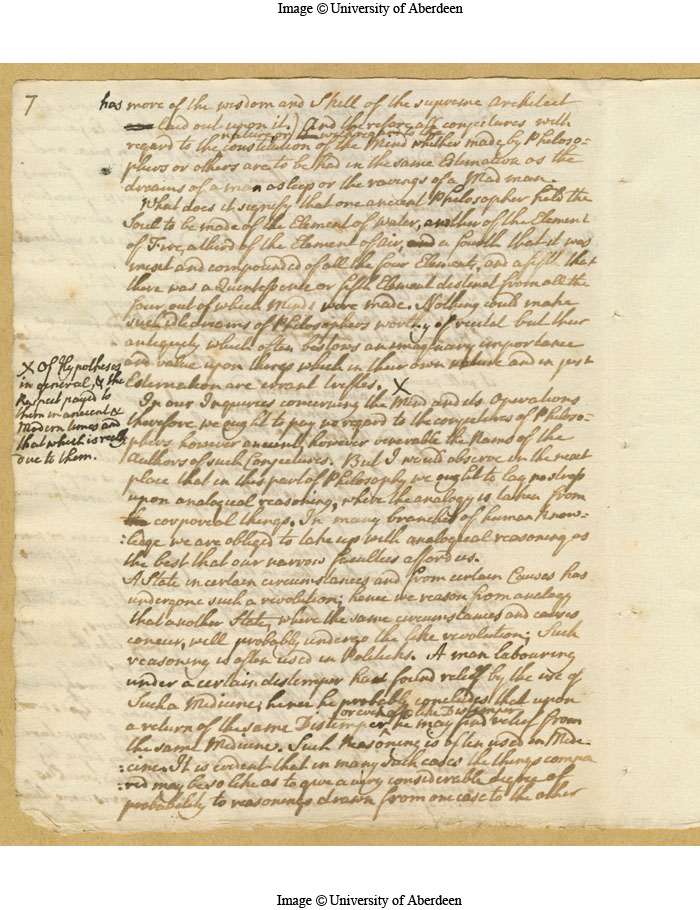 Image © University of Aberdeen
7
has more of the wisdom and Skill of the supreme Architect
laid out upon it.) And therefore all conjectures with
regard to the constitution of the Mind whither made by Philoso-
phers or others are to be had in the same Estimation as the
dreams of a man asleep or the ravings of a Mad man.
What does it signify that one ancient Philosopher held the
Soul to be made of the Element of Water, another of the Element
of Fire, a third of the Element of air, and a fourth that it was
mixt and compounded of all the four Elements, and a fifth that
there was a Quintessence or fifth Element distinct from all the
four out of which Minds were made. Nothing could make
such idle dreams of Philosophers worthy of recital but their
antiquity which often bestows an imaginary importance
and value upon things which in their own nature and in just
Estimation are errant trifles. X
X Of Hypotheses
in general, & the
Respect payed to
them in ancient &
Modern times and
that which is really
due to them.
In our Inquiries concerning the Mind and its Operations
therefore we ought to pay no regard to the conjectures of Philoso-
phers however ancient, however venerable the Name of the
Authors of such Conjectures. But I would observe in the next
place that in this part of Philosophy we ought to lay no stress
upon analogical reasoning, where the analogy is taken from
corporeal things. In many branches of human Know-
:ledge we are obliged to take up with analogical reasoning as
the best that our narrow faculties afford us.
A State in certain circumstances and from certain Causes has
undergone such a revolution; hence we reason from analogy
that another State, where the same circumstances and causes
concur, will probably undergo the like revolution; Such
reasoning is often used in Politicks. A man labouring
under a certain distemper has found relief by the use of
Such a Medicine; hence he probably concludes that upon
or even of a like Distemper
a return of the same Distemper he may find relief from
the same Medicine. Such Reasoning is often used in Mede-
:cine. It is evident that in many such cases the things compa
:red may be so like as to give a very considerable degree of
probability to reasonings drawn from one case to the other
Image © University of Aberdeen